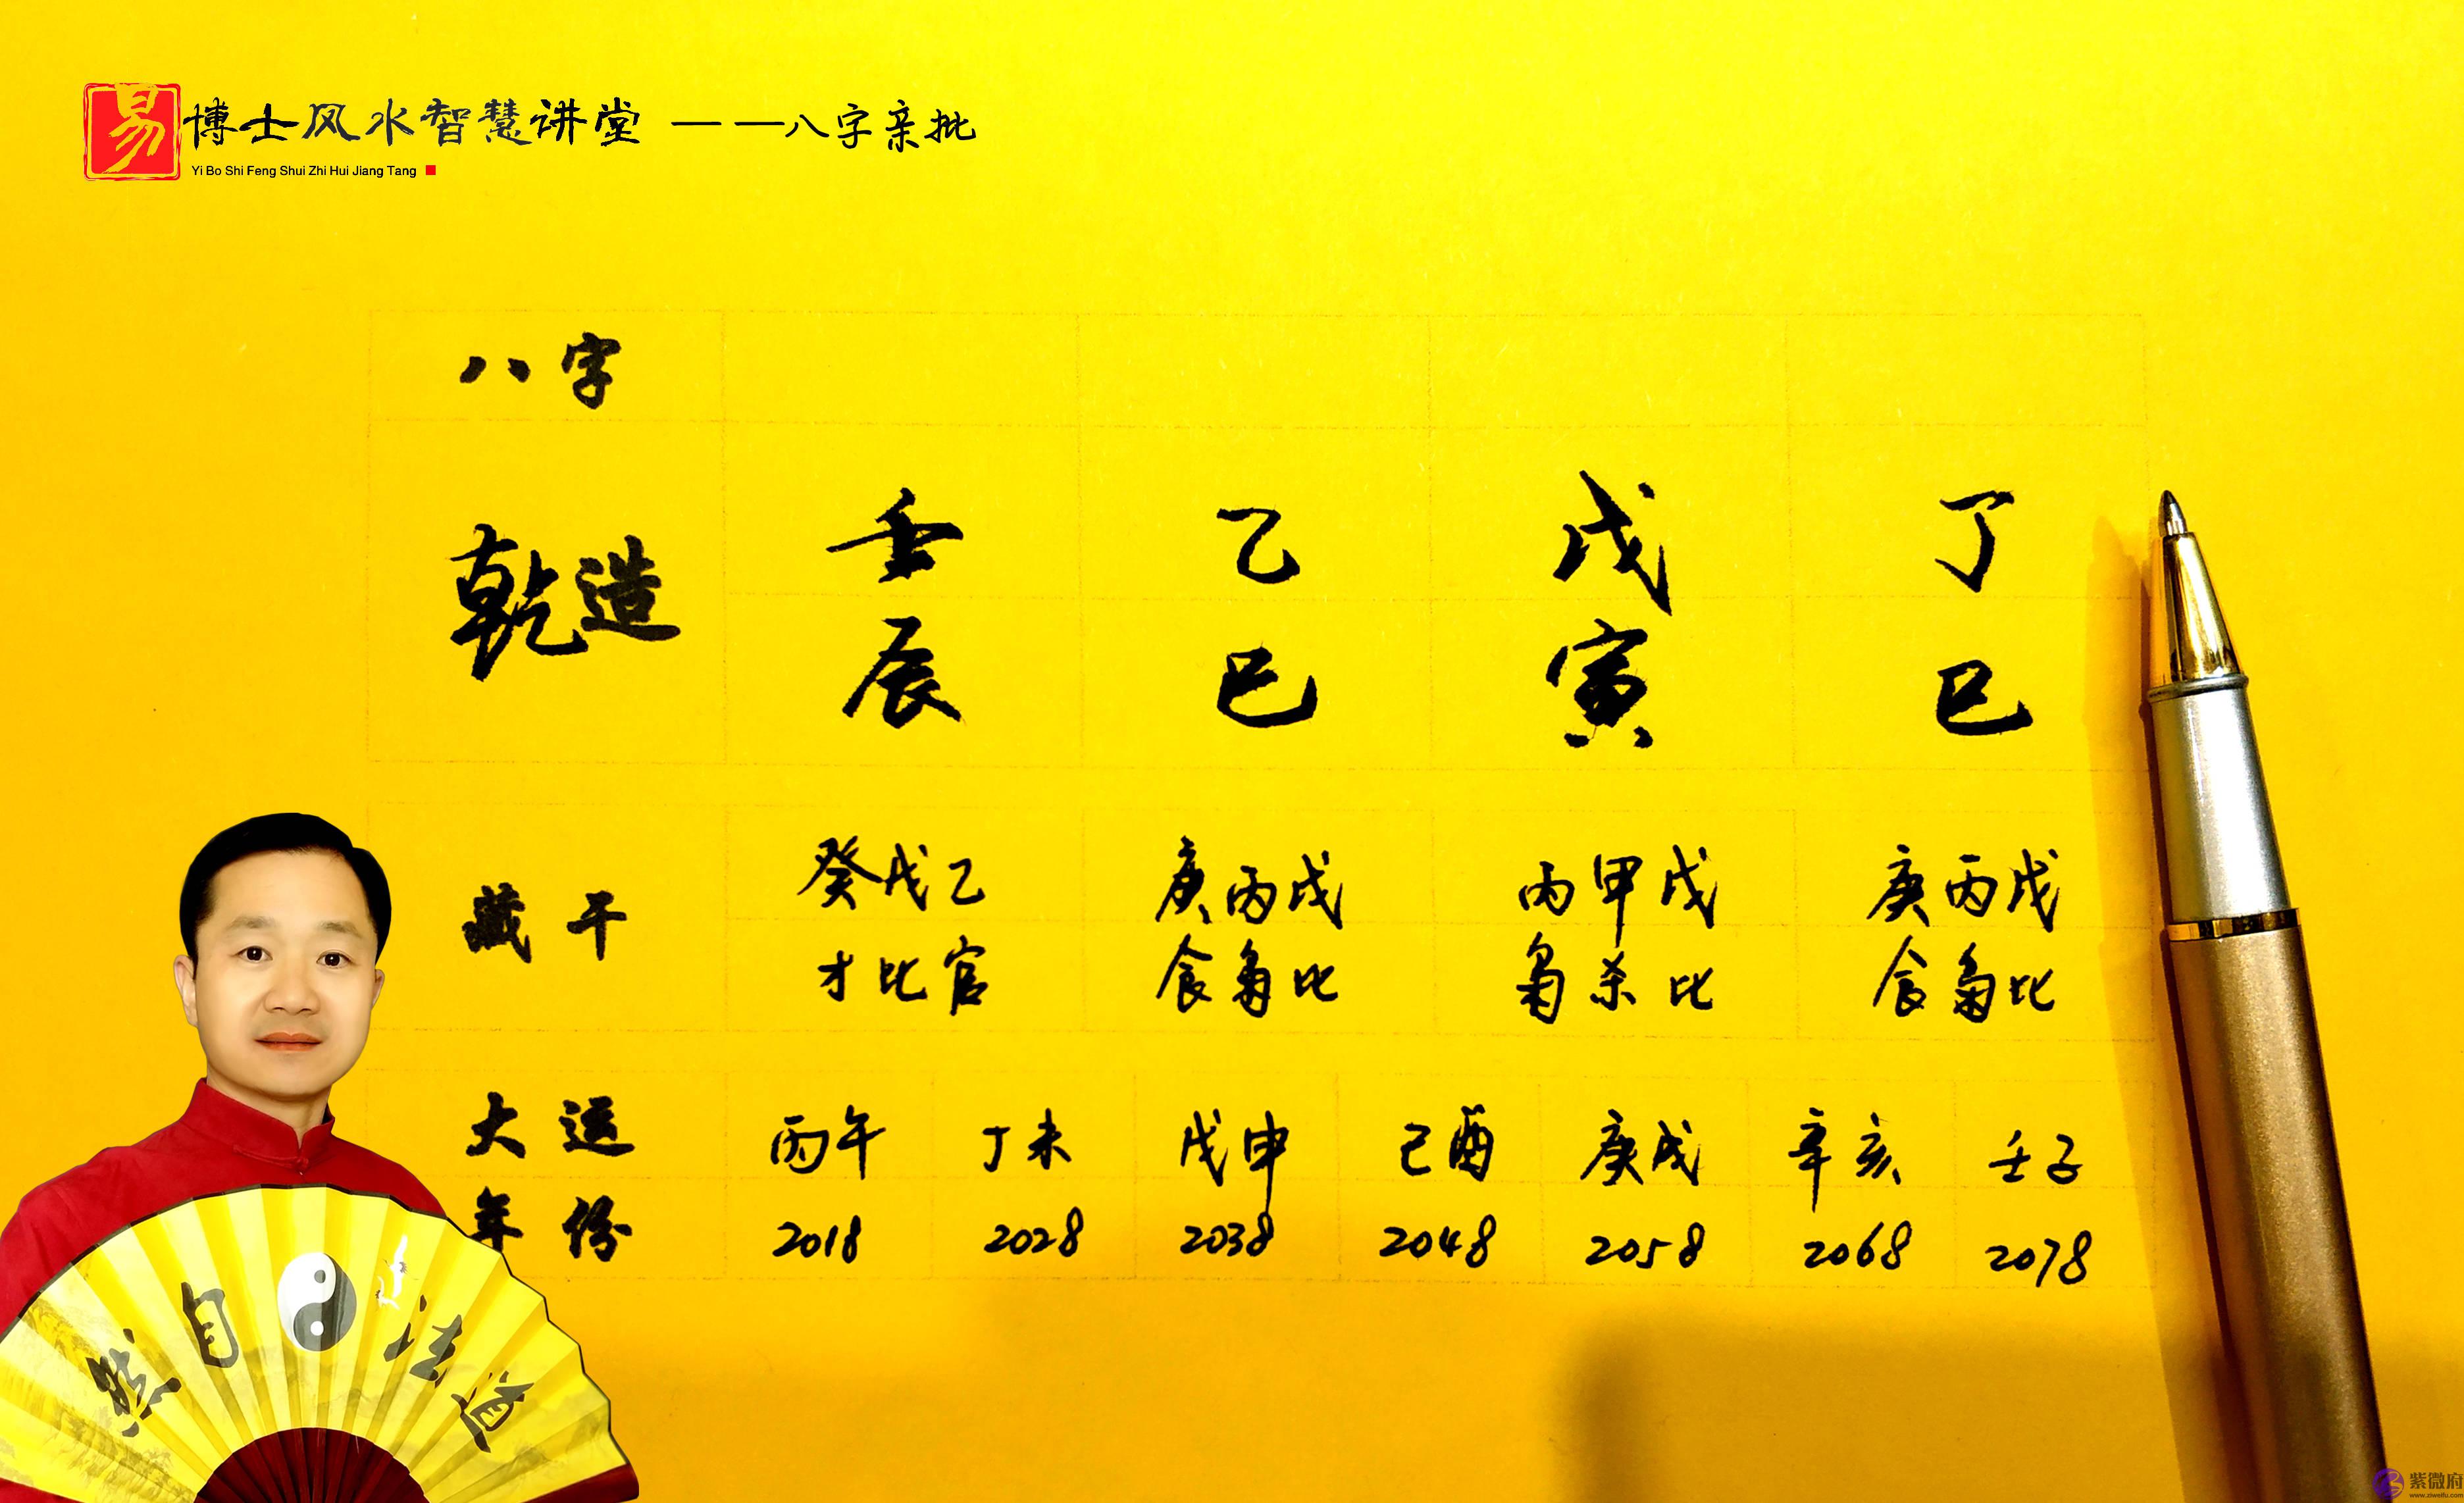 易博士风水智慧讲堂 ——八字亲批
Yi Bo Shi Feng Shui Zhi Hui Jiang Tang
八字
乾造 壬 乙 戊 丁
辰 巳 寅 巳
藏干 癸戊乙 庚丙戊 丙甲戊 庚丙戊
才比官 食枭比 枭杀比 食枭比
大运 丙午 丁未 戊申 己酉 庚戌 辛亥 壬子
年份 2018 2028 2038 2048 2058 2068 2078
然自法道
紫微府
www.ziweifu.com